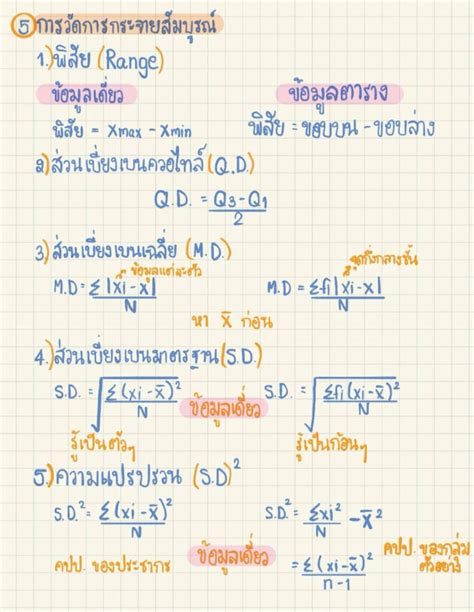 5 การวัดการกระจายสัมบูรณ์
1.) พิสัย (Range)
ข้อมูลเดี่ยว
ข้อมูลตาราง
พิสัย = Xmax - Xmin
พิสัย = ขอบบน - ขอบล่าง
2) ส่วนเบี่ยงเบนควอไทล์ (Q.D.)
Q.D. = Q3 - Q1 / 2
3.) ส่วนเบี่ยงเบนเฉลี่ย (M.D.)
ข้อมูลแต่ละตัว
จุดกึ่งกลางชั้น
M.D = Σ|xi - x̄| / N
M.D = Σfi|xi - x̄| / N
หา x̄ ก่อน
4.) ส่วนเบี่ยงเบนมาตรฐาน (S.D.)
S.D. = √(Σ(xi - x̄)² / N)
ข้อมูลเดี่ยว
S.D. = √(Σfi(xi - x̄)² / N)
รู้เป็นตัวๆ
รู้เป็นก้อนๆ
5.) ความแปรปรวน (S.D)²
S.D.² = Σ(xi - x̄)² / N
S.D.² = Σxi² / N - x̄²
คปป. ของประชากร
ข้อมูลเดี่ยว
= Σ(xi - x̄)² / n-1
คปป. ของกลุ่มตัวอย่าง